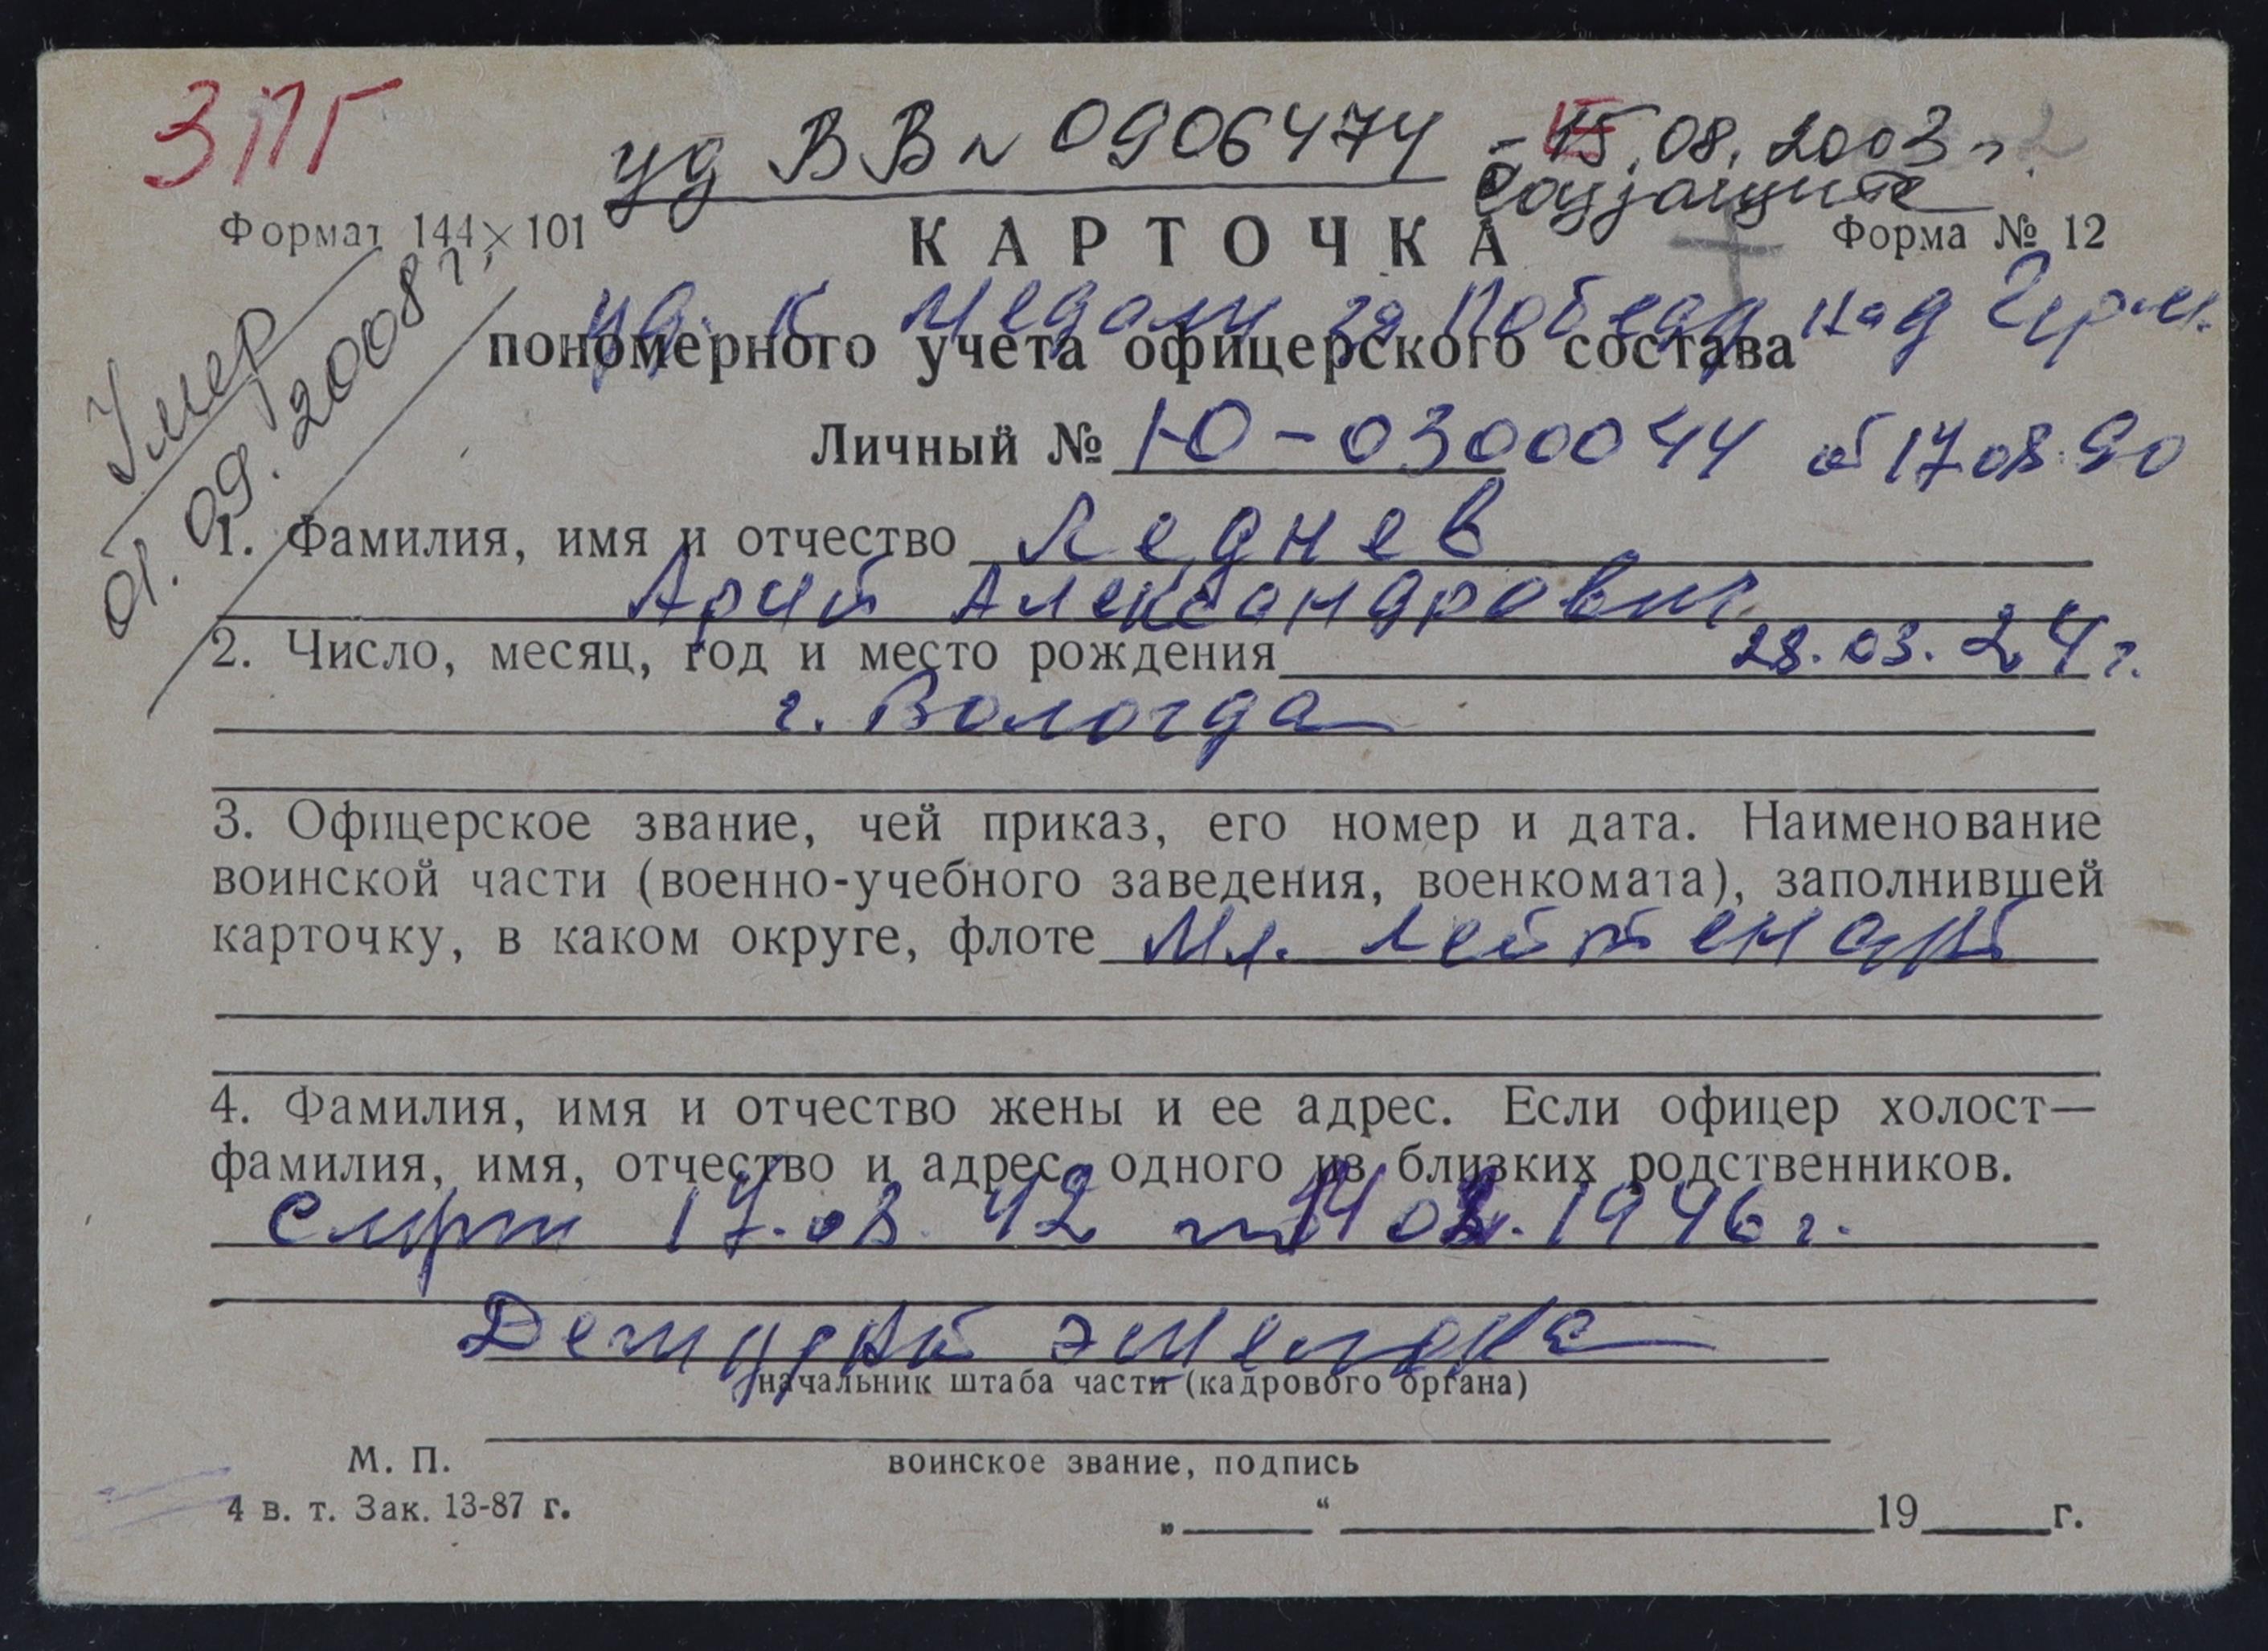 ЗПГ
уд ВВ № 0906474 - 15.08.2003 г.
Соцзащите
Формат 144×101
КАРТОЧКА
Форма № 12
Умер
01.09.2008 г.
уд. к медали за Победу над Герм.
пономерного учета офицерского состава
Личный № Ю-0300044 от 17.08.90
1. Фамилия, имя и отчество Леднев
Арий Александрович
2. Число, месяц, год и место рождения 28.03.24 г.
г. Вологда
3. Офицерское звание, чей приказ, его номер и дата. Наименование
воинской части (военно-учебного заведения, военкомата), заполнившей
карточку, в каком округе, флоте Мл. лейтенант
4. Фамилия, имя и отчество жены и ее адрес. Если офицер холост—
фамилия, имя, отчество и адрес одного из близких родственников.
17.08.42 по 1946 г.
начальник штаба части (кадрового органа)
М. П.
воинское звание, подпись
4 в. т. Зак. 13-87 г.
„ “ 19 г.